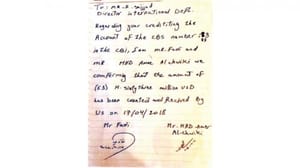 To: Mr. F. Sayyed
Director International Dept.
Regarding your crediting the
Account of the CBS number
in the CBI, I am Mr. Fadi and
MR MHD Amer Alchwiki we
confirming that the amount of
(63) M. sixty three million USD
has been created and Recived By
Us on 19/04/2018
Mr Fadi Mr. MHD Amer
Alchwiki